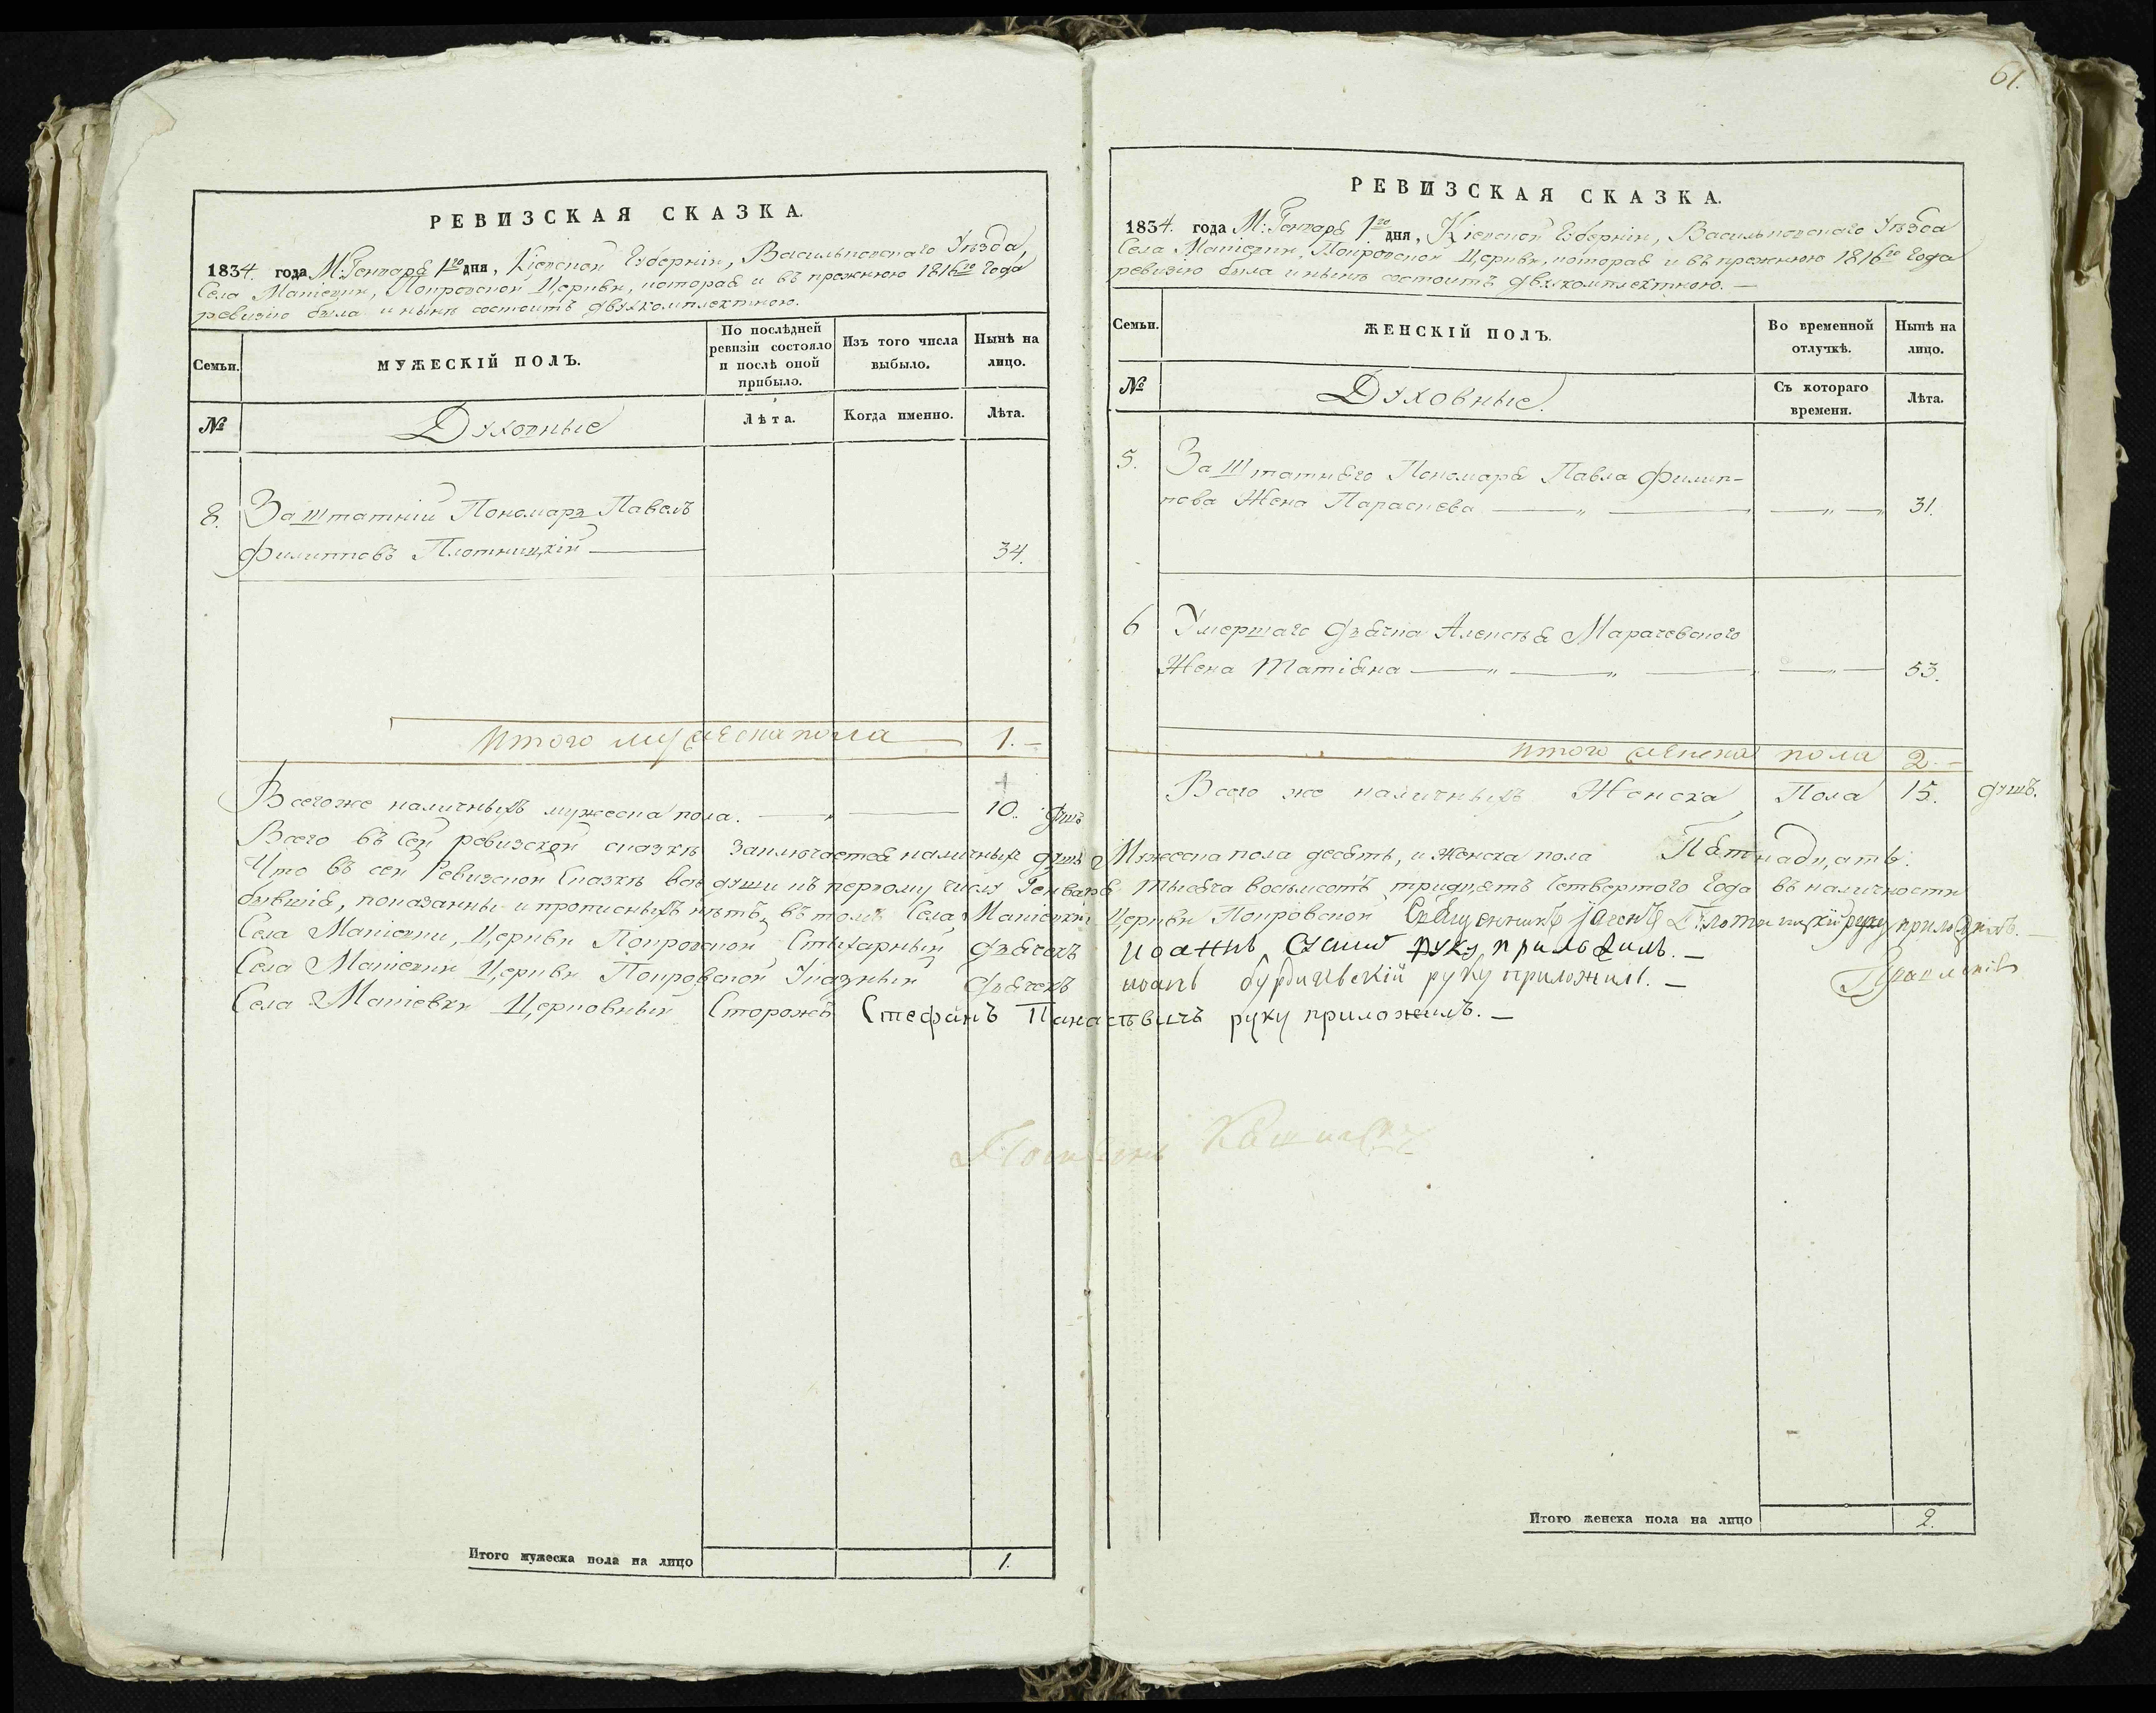 61.
РЕВИЗСКАЯ СКАЗКА.
1834. года М: Генваря 1го дня, Кіевской Губерніи, Васильковскаго Уѣзда,
Села Матіевки, Покровской Церкви, которая и въ прежнюю 1816го Года
ревизію была и нынѣ состоитъ двухкомплектною.
Семьи.
МУЖЕСКІЙ ПОЛЪ.
По послѣдней ревизіи состояло и послѣ оной прибыло.
Изъ того числа выбыло.
Нынѣ на лицо.
№
Духовные
Лѣта.
Когда именно.
Лѣта.
8. Заштатній Пономаръ Павелъ
Филиповъ Плотницкій 34.
Итого мужеска пола 1.
Всегоже наличныхъ мужеска пола. 10. душъ
РЕВИЗСКАЯ СКАЗКА.
1834. года М: Генваря 1го дня, Кіевской Губерніи, Васильковскаго Уѣзда
Села Матіевки, Покровской Церкви, которая и въ прежнюю 1816го Года
ревизію была и нынѣ состоитъ двухкомплектною.
Семьи.
ЖЕНСКІЙ ПОЛЪ.
Во временной отлучкѣ.
Нынѣ на лицо.
№
Духовные.
Съ котораго времени.
Лѣта.
5. Заштатняго Пономаря Павла Филип-
пова Жена Параскева 31.
6 Умершаго дьячка Алексѣя Марачевского
Жена Татіяна 53.
Итого женска пола 2.
Всего же наличныхъ Женска Пола 15. душъ.
Всего въ сей ревизской сказкѣ заключается наличныхъ душъ Мужеска пола десять, и женска пола Пятнадцать.
Что въ сей Ревизской Сказкѣ всѣ души къ первому числу Генваря тысяча восьмсотъ тридцять Четвертого Года въ наличности
бывшія, показанны и прописныхъ нѣтъ, въ томъ Села Матіевки Церкви Покровской Священникъ Плотницкій руку приложилъ.
Села Матіевки, Церкви Покровской Стихарный дьячекъ Иоаннъ руку приложилъ.
Села Матіевки Церкви Покровской Указный дьячекъ иоанъ руку приложилъ.
Села Матіевки Церковный Сторожъ Стефанъ Панасѣвичъ руку приложилъ.
Итого мужеска пола на лицо 1.
Итого женска пола на лицо 2.